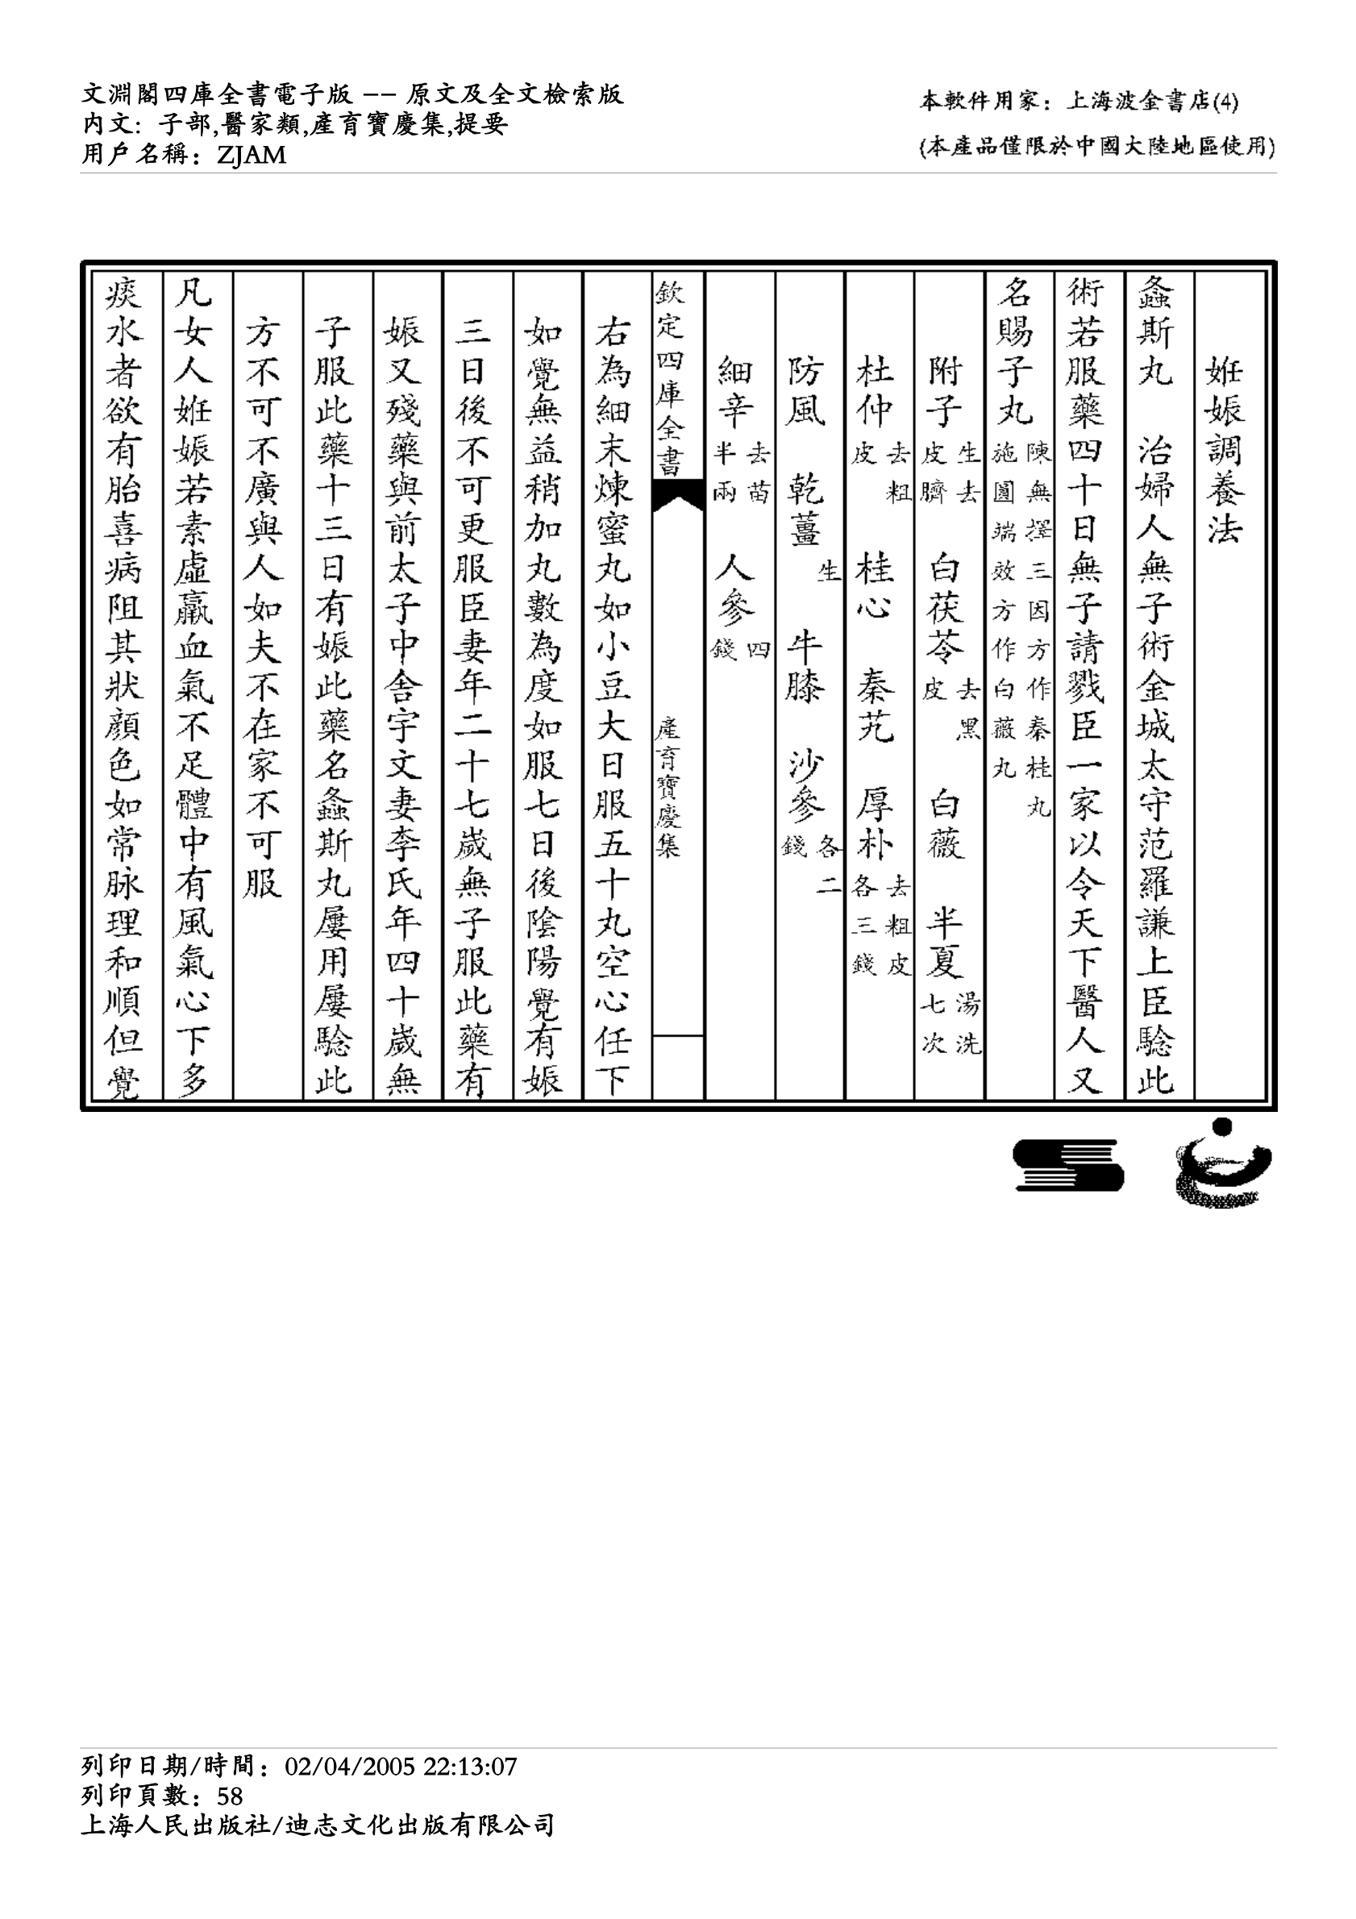 文淵閣四庫全書電子版 -- 原文及全文檢索版
内文: 子部,醫家類,產育寶慶集,提要
用戶名稱: ZJAM
本軟件用家: 上海波金書店(4)
(本產品僅限於中國大陸地區使用)
姙娠調養法
螽斯丸 治婦人無子術金城太守范羅謙上臣騐此
術若服藥四十日無子請戮臣一家以令天下醫人又
名賜子丸陳無擇三因方作秦桂丸施圓端效方作白薇丸
附子生去皮臍 白茯苓去黑皮 白薇 半夏湯洗七次
杜仲去粗皮 桂心 秦芃 厚朴去粗皮各三錢
防風 乾薑生 牛膝 沙參各二錢
細辛去苗半兩 人參四錢
欽定四庫全書 產育寶慶集
右為細末煉蜜丸如小豆大日服五十丸空心任下
如覺無益稍加丸數為度如服七日後陰陽覺有娠
三日後不可更服臣妻年二十七歲無子服此藥有
娠又殘藥與前太子中舍宇文妻李氏年四十歲無
子服此藥十三日有娠此藥名螽斯丸屢用屢騐此
方不可不廣與人如夫不在家不可服
凡女人姙娠若素虛羸血氣不足體中有風氣心下多
痰水者欲有胎喜病阻其狀顔色如常脉理和順但覺
列印日期/時間: 02/04/2005 22:13:07
列印頁數: 58
上海人民出版社/迪志文化出版有限公司